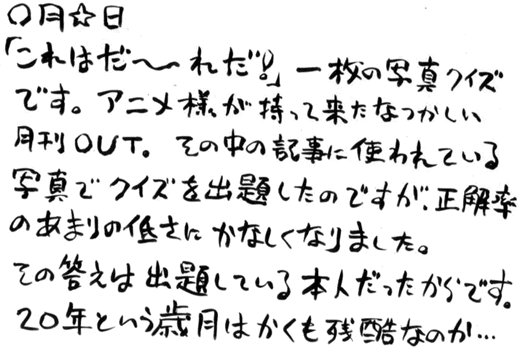 ○月☆日
「これはだ〜れだ?」一枚の写真クイズ
です。アニメ様が持って来たなつかしい
月刊OUT。その中の記事に使われている
写真でクイズを出題したのですが、正解率
のあまりの低さにかなしくなりました。
その答えは出題している本人だったからです。
20年という歳月はかくも残酷なのか…